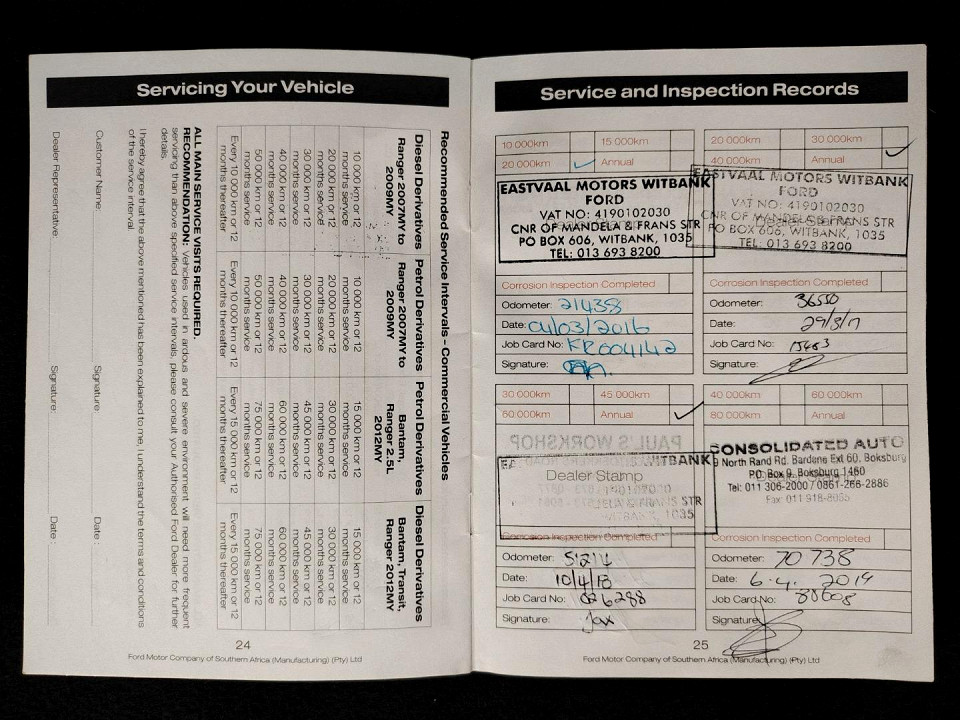 Servicing Your Vehicle
Recommended Service Intervals - Commercial Vehicles
Diesel Derivatives Ranger 2007MY to 2009MY
Petrol Derivatives Ranger 2007MY to 2009MY
Petrol Derivatives Bantam, Ranger 2.5L 2012MY
Diesel Derivatives Bantam, Transit, Ranger 2012MY
10 000 km or 12 months service
10 000 km or 12 months service
15 000 km or 12 months service
15 000 km or 12 months service
20 000 km or 12 months service
20 000 km or 12 months service
30 000 km or 12 months service
30 000 km or 12 months service
30 000 km or 12 months service
30 000 km or 12 months service
45 000 km or 12 months service
45 000 km or 12 months service
40 000 km or 12 months service
40 000 km or 12 months service
60 000 km or 12 months service
60 000 km or 12 months service
50 000 km or 12 months service
50 000 km or 12 months service
75 000 km or 12 months service
75 000 km or 12 months service
Every 10 000 km or 12 months thereafter
Every 10 000 km or 12 months thereafter
Every 15 000 km or 12 months thereafter
Every 15 000 km or 12 months thereafter
ALL MAIN SERVICE VISITS REQUIRED.
RECOMMENDATION: Vehicles used in ardous and severe environment will need more frequent
servicing than above specified service intervals, please consult your Authorised Ford Dealer for further
details.
I hereby agree that the above mentioned has been explained to me, I understand the terms and conditions
of the service interval.
Customer Name: Signature: Date :
Dealer Representative: Signature: Date :
24
Ford Motor Company of Southern Africa (Manufacturing) (Pty) Ltd
Service and Inspection Records
10 000km 15 000km
20 000km Annual
EASTVAAL MOTORS WITBANK
FORD
VAT NO: 4190102030
CNR OF MANDELA & FRANS STR
PO BOX 606, WITBANK, 1035
TEL: 013 693 8200
Corrosion Inspection Completed
Odometer: 214358
Date: 04/03/2016
Job Card No: KR004142
Signature:
20 000km 30 000km
40 000km Annual
EASTVAAL MOTORS WITBANK
FORD
VAT NO: 4190102030
CNR OF MANDELA & FRANS STR
PO BOX 606, WITBANK, 1035
TEL: 013 693 8200
Corrosion Inspection Completed
Odometer: 36550
Date: 29/3/17
Job Card No:
Signature:
30 000km 45 000km
60 000km Annual
PAUL'S WORKSHOP
WITBANK
Dealer Stamp
WITBANK, 1035
Corrosion Inspection Completed
Odometer:
Date: 10/4/18
Job Card No:
Signature:
40 000km 60 000km
80 000km Annual
CONSOLIDATED AUTO
North Rand Rd. Bardene Ext 60. Boksburg
P.O. Box 9. Boksburg 1460
Tel: 011 306-2000 / 0861-266-2886
Fax: 011 918-8035
Corrosion Inspection Completed
Odometer: 70 738
Date: 6.4. 2019
Job Card No: 88608
Signature:
25
Ford Motor Company of Southern Africa (Manufacturing) (Pty) Ltd